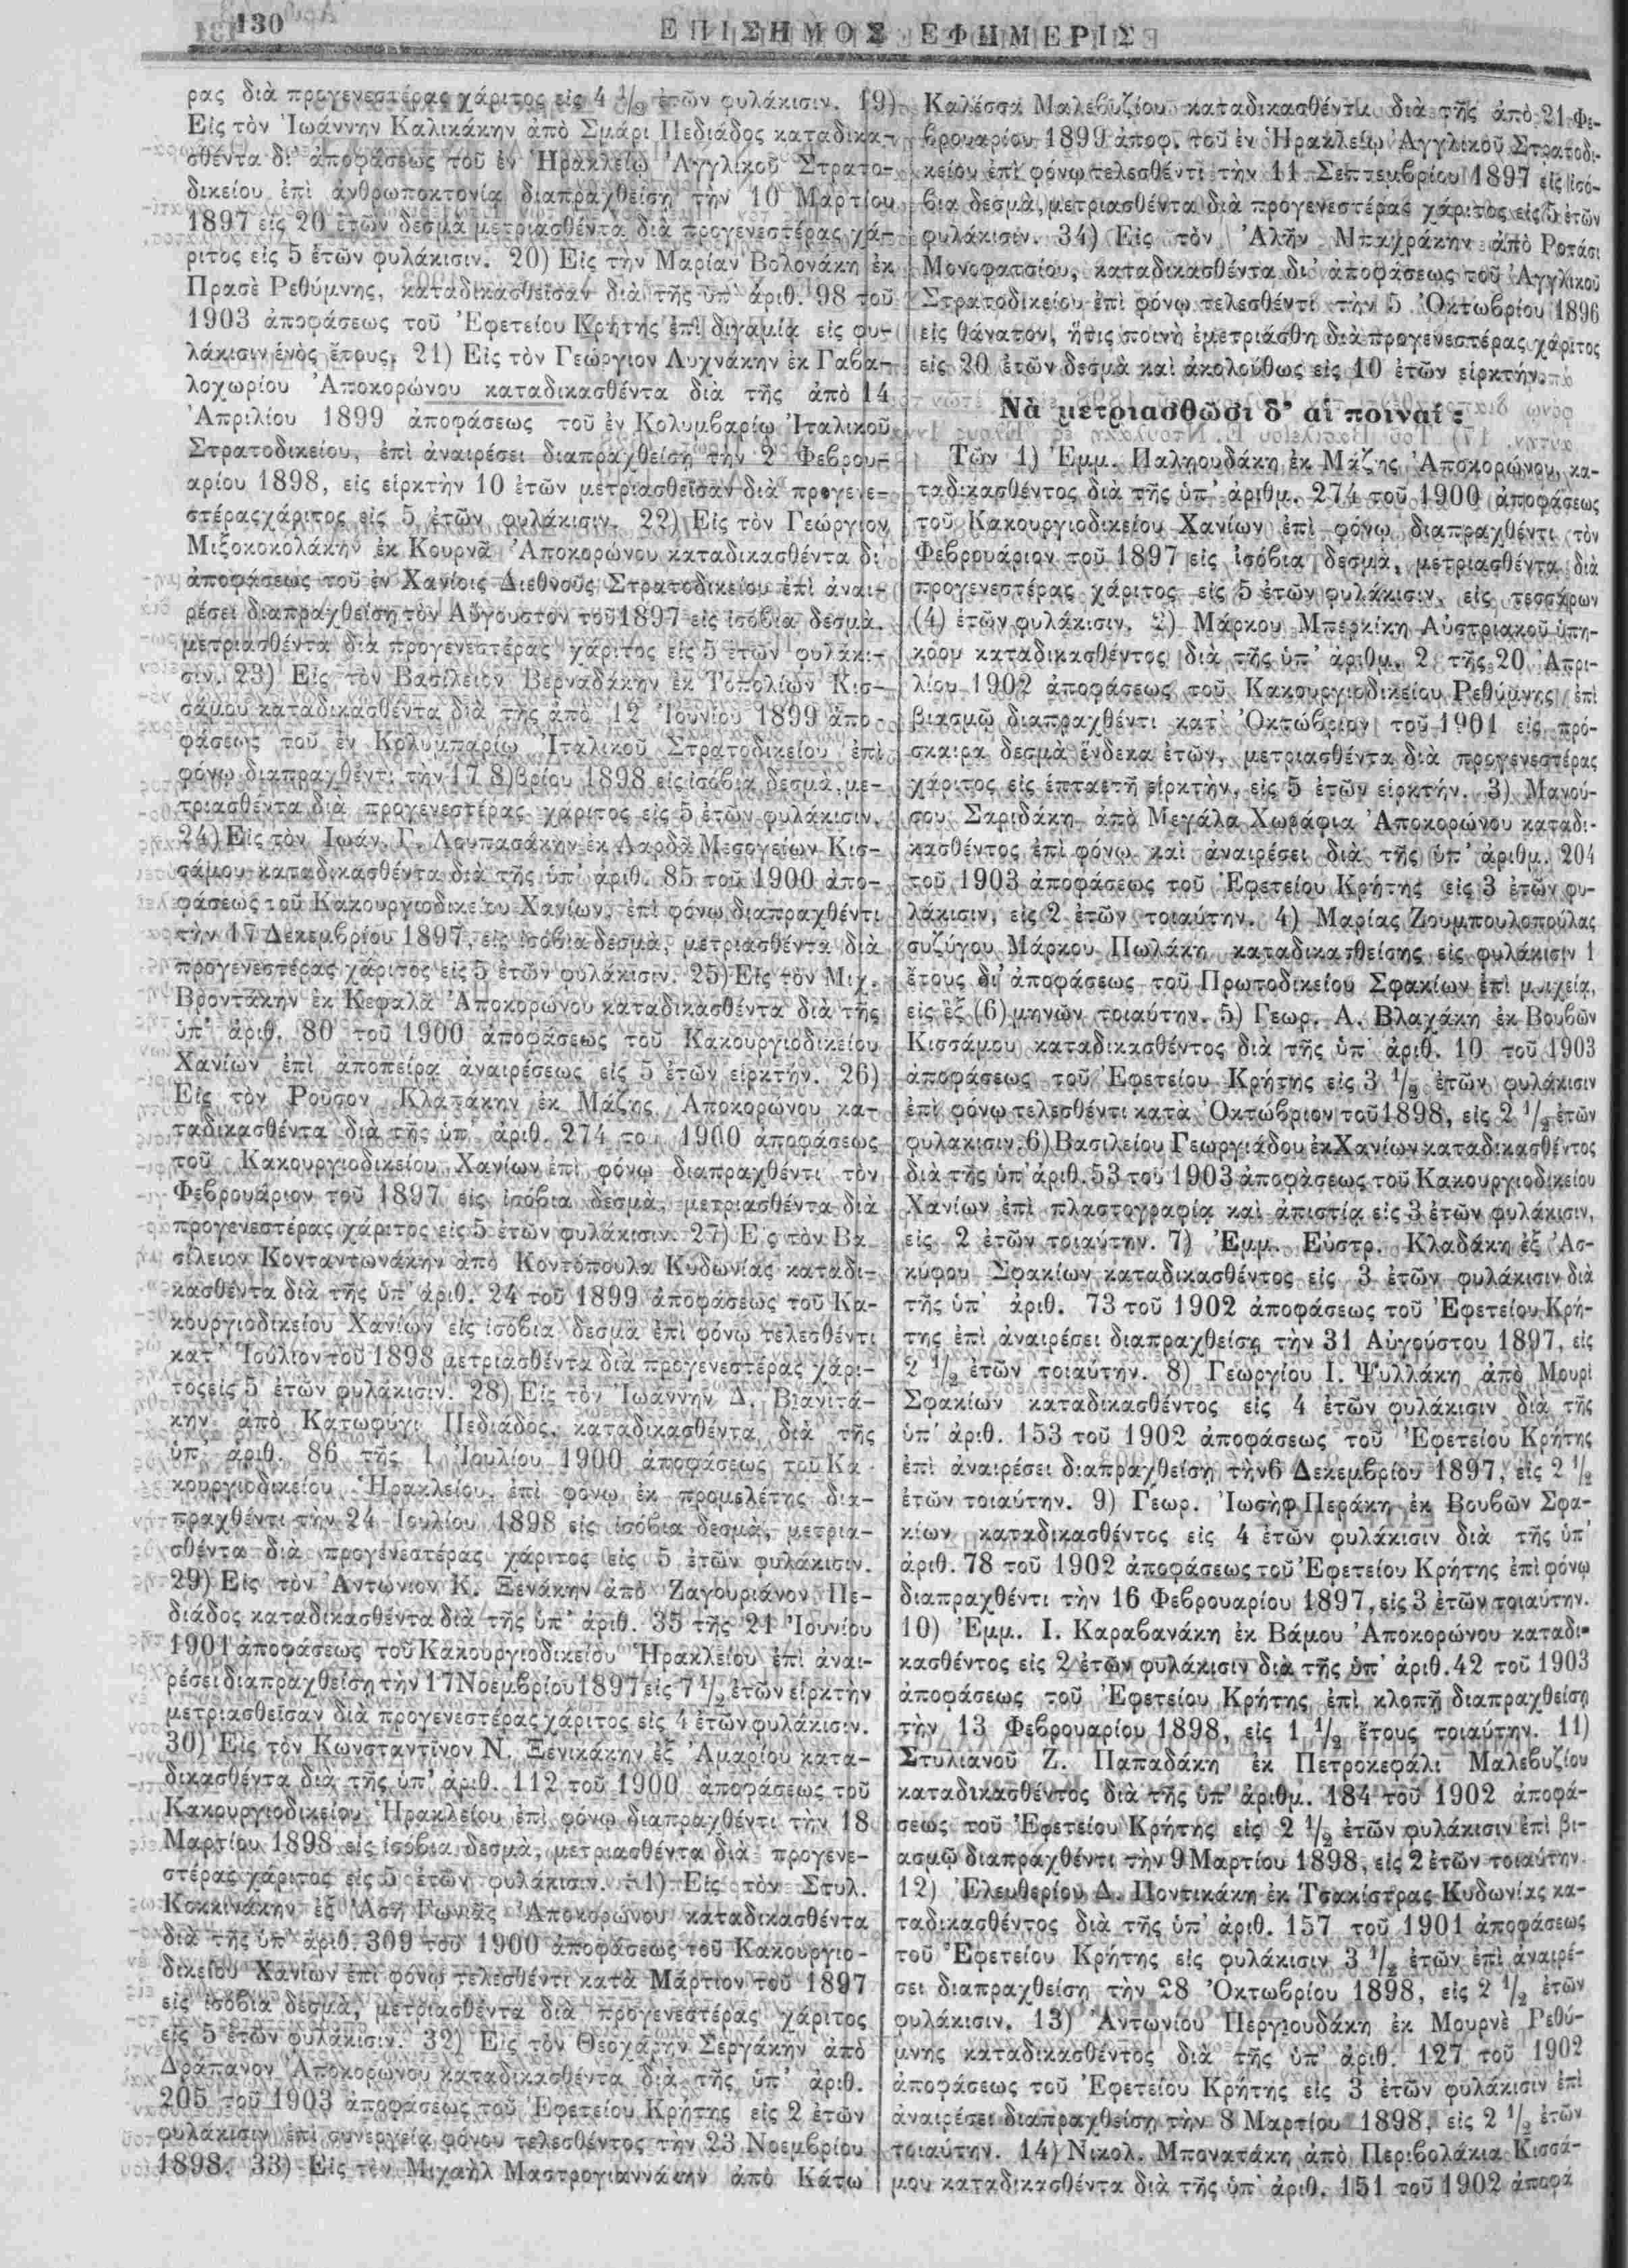 130
ΕΠΙΣΗΜΟΣ ΕΦΗΜΕΡΙΣ
ρας διὰ προγενεστέρας χάριτος εἰς 4 1/2 ἐτῶν φυλάκισιν. 19)
Εἰς τὸν Ἰωάννην Καλικάκην ἀπὸ Σμάρι Πεδιάδος καταδικα-
σθέντα δι' ἀποφάσεως τοῦ ἐν Ἡρακλείῳ Ἀγγλικοῦ Στρατο-
δικείου ἐπὶ ἀνθρωποκτονίᾳ διαπραχθείσῃ τὴν 10 Μαρτίου
1897 εἰς 20 ἐτῶν δεσμὰ μετριασθέντα διὰ προγενεστέρας χά-
ριτος εἰς 5 ἐτῶν φυλάκισιν. 20) Εἰς τὴν Μαρίαν Βολονάκη ἐκ
Πρασὲ Ρεθύμνης, καταδικασθεῖσαν διὰ τῆς ὑπ' ἀριθ. 98 τοῦ
1903 ἀποφάσεως τοῦ Ἐφετείου Κρήτης ἐπὶ διγαμίᾳ εἰς φυ-
λάκισιν ἑνὸς ἔτους. 21) Εἰς τὸν Γεώργιον Λυχνάκην ἐκ Γαβα-
λοχωρίου Ἀποκορώνου καταδικασθέντα διὰ τῆς ἀπὸ 14
Ἀπριλίου 1899 ἀποφάσεως τοῦ ἐν Κολυμβαρίῳ Ἰταλικοῦ
Στρατοδικείου, ἐπὶ ἀναιρέσει διαπραχθείσῃ τὴν 2 Φεβρου-
αρίου 1898, εἰς εἱρκτὴν 10 ἐτῶν μετριασθεῖσαν διὰ προγενε-
στέρας χάριτος εἰς 5 ἐτῶν φυλάκισιν. 22) Εἰς τὸν Γεώργιον
Μιξοκοκολάκην ἐκ Κουρνᾶ Ἀποκορώνου καταδικασθέντα δι'
ἀποφάσεως τοῦ ἐν Χανίοις Διεθνοῦς Στρατοδικείου ἐπὶ ἀναι-
ρέσει διαπραχθείσῃ τὸν Αὔγουστον τοῦ 1897 εἰς ἰσόβια δεσμὰ.
μετριασθέντα διὰ προγενεστέρας χάριτος εἰς 5 ἐτῶν φυλάκι-
σιν. 23) Εἰς τὸν Βασίλειον Βερναδάκην ἐκ Τοπολίων Κισ-
σάμου καταδικασθέντα διὰ τῆς ἀπὸ 12 Ἰουνίου 1899 ἀπο-
φάσεως τοῦ ἐν Κολυμπαρίῳ Ἰταλικοῦ Στρατοδικείου ἐπὶ
φόνῳ διαπραχθέντι τὴν 17 8)βρίου 1898 εἰς ἰσόβια δεσμὰ, με-
τριασθέντα διὰ προγενεστέρας χάριτος εἰς 5 ἐτῶν φυλάκισιν.
24) Εἰς τὸν Ἰωάν. Γ. Λουπασάκην ἐκ Λαρδᾶ Μεσογείων Κισ-
σάμου καταδικασθέντα διὰ τῆς ὑπ' ἀριθ. 85 τοῦ 1900 ἀπο-
φάσεως τοῦ Κακουργιοδικείου Χανίων, ἐπὶ φόνῳ διαπραχθέντι
τὴν 17 Δεκεμβρίου 1897, εἰς ἰσόβια δεσμὰ, μετριασθέντα διὰ
προγενεστέρας χάριτος εἰς 5 ἐτῶν φυλάκισιν. 25) Εἰς τὸν Μιχ.
Βροντάκην ἐκ Κεφαλᾶ Ἀποκορώνου καταδικασθέντα διὰ τῆς
ὑπ' ἀριθ. 80 τοῦ 1900 ἀποφάσεως τοῦ Κακουργιοδικείου
Χανίων ἐπὶ ἀποπείρᾳ ἀναιρέσεως εἰς 5 ἐτῶν εἱρκτήν. 26)
Εἰς τὸν Ροῦσον Κλατάκην ἐκ Μάζης Ἀποκορώνου κατ
ταδικασθέντα διὰ τῆς ὑπ' ἀριθ. 274 το 1900 ἀποφάσεως
τοῦ Κακουργιοδικείου Χανίων ἐπὶ φόνῳ διαπραχθέντι τὸν
Φεβρουάριον τοῦ 1897 εἰς ἰσόβια δεσμὰ, μετριασθέντα διὰ
προγενεστέρας χάριτος εἰς 5 ἐτῶν φυλάκισιν. 27) Εἰς τὸν Βα
σίλειον Κονταντωνάκην ἀπὸ Κοντόπουλα Κυδωνίας καταδι-
κασθέντα διὰ τῆς ὑπ' ἀριθ. 24 τοῦ 1899 ἀποφάσεως τοῦ Κα-
κουργιοδικείου Χανίων εἰς ἰσόβια δεσμὰ ἐπὶ φόνῳ τελεσθέντι
κατ' Ἰούλιον τοῦ 1898 μετριασθέντα διὰ προγενεστέρας χάρι-
τος εἰς 5 ἐτῶν φυλάκισιν. 28) Εἰς τὸν Ἰωάννην Δ. Βιανιτά-
κην ἀπὸ Κατωφύγι Πεδιάδος, καταδικασθέντα διὰ τῆς
ὑπ' ἀριθ. 86 τῆς 1 Ἰουλίου 1900 ἀποφάσεως τοῦ Κα
κουργιοδικείου Ἡρακλείου, ἐπὶ φόνῳ ἐκ προμελέτης δια-
πραχθέντι τὴν 24 Ἰουλίου 1898 εἰς ἰσόβια δεσμὰ, μετρια-
σθέντα διὰ προγενεστέρας χάριτος εἰς 5 ἐτῶν φυλάκισιν.
29) Εἰς τὸν Ἀντώνιον Κ. Ξενάκην ἀπὸ Ζαγουριάνον Πε-
διάδος καταδικασθέντα διὰ τῆς ὑπ' ἀριθ. 35 τῆς 21 Ἰουνίου
1901 ἀποφάσεως τοῦ Κακουργιοδικείου Ἡρακλείου ἐπὶ ἀναι-
ρέσει διαπραχθείσῃ τὴν 17 Νοεμβρίου 1897 εἰς 7 1/2 ἐτῶν εἱρκτὴν
μετριασθεῖσαν διὰ προγενεστέρας χάριτος εἰς 4 ἐτῶν φυλάκισιν.
30) Εἰς τὸν Κωνσταντῖνον Ν. Ξενικάκην ἐξ Ἀμαρίου κατα-
δικασθέντα διὰ τῆς ὑπ' ἀριθ. 112 τοῦ 1900 ἀποφάσεως τοῦ
Κακουργιοδικείου Ἡρακλείου ἐπὶ φόνῳ διαπραχθέντι τὴν 18
Μαρτίου 1898 εἰς ἰσόβια δεσμὰ, μετριασθέντα διὰ προγενε-
στέρας χάριτος εἰς 5 ἐτῶν φυλάκισιν. 31) Εἰς τὸν Στυλ.
Κοκκινάκην ἐξ Ἀσῆ Γωνιᾶς Ἀποκορώνου καταδικασθέντα
διὰ τῆς ὑπ' ἀριθ. 309 τοῦ 1900 ἀποφάσεως τοῦ Κακουργιο-
δικείου Χανίων ἐπὶ φόνῳ τελεσθέντι κατὰ Μάρτιον τοῦ 1897
εἰς ἰσόβια δεσμὰ, μετριασθέντα διὰ προγενεστέρας χάριτος
εἰς 5 ἐτῶν φυλάκισιν. 32) Εἰς τὸν Θεοχάρην Σεργάκην ἀπὸ
Δράπανον Ἀποκορώνου καταδικασθέντα διὰ τῆς ὑπ' ἀριθ.
205 τοῦ 1903 ἀποφάσεως τοῦ Ἐφετείου Κρήτης εἰς 2 ἐτῶν
φυλάκισιν ἐπὶ συνεργείᾳ φόνου τελεσθέντος τὴν 23 Νοεμβρίου
1898. 33) Εἰς τὸν Μιχαὴλ Μαστρογιαννάκην ἀπὸ Κάτω
Καλέσσα Μαλεβυζίου καταδικασθέντα διὰ τῆς ἀπὸ 21 Φε-
βρουαρίου 1899 ἀποφ. τοῦ ἐν Ἡρακλείῳ Ἀγγλικοῦ Στρατοδι-
κείου ἐπὶ φόνῳ τελεσθέντι τὴν 11 Σεπτεμβρίου 1897 εἰς ἰσό-
βια δεσμὰ, μετριασθέντα διὰ προγενεστέρας χάριτος εἰς 5 ἐτῶν
φυλάκισιν. 34) Εἰς τὸν Ἀλῆν Μπαχράκην ἀπὸ Ροτάσι
Μονοφατσίου, καταδικασθέντα δι' ἀποφάσεως τοῦ Ἀγγλικοῦ
Στρατοδικείου ἐπὶ φόνῳ τελεσθέντι τὴν 5 Ὀκτωβρίου 1896
εἰς θάνατον, ἥτις ποινὴ ἐμετριάσθη διὰ προγενεστέρας χάριτος
εἰς 20 ἐτῶν δεσμὰ καὶ ἀκολούθως εἰς 10 ἐτῶν εἱρκτήν.
Νὰ μετριασθῶσι δ' αἱ ποιναί :
Τῶν 1) Ἐμμ. Παληουδάκη ἐκ Μάζης Ἀποκορώνου, κα-
ταδικασθέντος διὰ τῆς ὑπ' ἀριθμ. 274 τοῦ 1900 ἀποφάσεως
τοῦ Κακουργιοδικείου Χανίων ἐπὶ φόνῳ διαπραχθέντι τὸν
Φεβρουάριον τοῦ 1897 εἰς ἰσόβια δεσμὰ, μετριασθέντα διὰ
προγενεστέρας χάριτος εἰς 5 ἐτῶν φυλάκισιν, εἰς τεσσάρων
(4) ἐτῶν φυλάκισιν. 2) Μάρκου Μπερκίκη Αὐστριακοῦ ὑπη-
κόου καταδικασθέντος διὰ τῆς ὑπ' ἀριθμ. 2 τῆς 20 Ἀπρι-
λίου 1902 ἀποφάσεως τοῦ Κακουργιοδικείου Ρεθύμνης ἐπὶ
βιασμῷ διαπραχθέντι κατ' Ὀκτώβριον τοῦ 1901 εἰς πρό-
σκαιρα δεσμὰ ἕνδεκα ἐτῶν, μετριασθέντα διὰ προγενεστέρας
χάριτος εἰς ἑπταετῆ εἱρκτὴν, εἰς 5 ἐτῶν εἱρκτήν. 3) Μανού-
σου Σαριδάκη ἀπὸ Μεγάλα Χωράφια Ἀποκορώνου καταδι-
κασθέντος ἐπὶ φόνῳ καὶ ἀναιρέσει διὰ τῆς ὑπ' ἀριθμ. 204
τοῦ 1903 ἀποφάσεως τοῦ Ἐφετείου Κρήτης εἰς 3 ἐτῶν φυ-
λάκισιν, εἰς 2 ἐτῶν τοιαύτην. 4) Μαρίας Ζουμπουλοπούλας
συζύγου Μάρκου Πωλάκη καταδικασθείσης εἰς φυλάκισιν 1
ἔτους δι' ἀποφάσεως τοῦ Πρωτοδικείου Σφακίων ἐπὶ μοιχείᾳ,
εἰς ἓξ (6) μηνῶν τοιαύτην. 5) Γεωρ. Α. Βλαχάκη ἐκ Βουβῶν
Κισσάμου καταδικασθέντος διὰ τῆς ὑπ' ἀριθ. 10 τοῦ 1903
ἀποφάσεως τοῦ Ἐφετείου Κρήτης εἰς 3 1/2 ἐτῶν φυλάκισιν
ἐπὶ φόνῳ τελεσθέντι κατὰ Ὀκτώβριον τοῦ 1898, εἰς 2 1/2 ἐτῶν
φυλάκισιν. 6) Βασιλείου Γεωργιάδου ἐκ Χανίων καταδικασθέντος
διὰ τῆς ὑπ' ἀριθ. 53 τοῦ 1903 ἀποφάσεως τοῦ Κακουργιοδικείου
Χανίων ἐπὶ πλαστογραφίᾳ καὶ ἀπιστίᾳ εἰς 3 ἐτῶν φυλάκισιν,
εἰς 2 ἐτῶν τοιαύτην. 7) Ἐμμ. Εὐστρ. Κλαδάκη ἐξ Ἀσ-
κύφου Σφακίων καταδικασθέντος εἰς 3 ἐτῶν φυλάκισιν διὰ
τῆς ὑπ' ἀριθ. 73 τοῦ 1902 ἀποφάσεως τοῦ Ἐφετείου Κρή-
της ἐπὶ ἀναιρέσει διαπραχθείσῃ τὴν 31 Αὐγούστου 1897, εἰς
2 1/2 ἐτῶν τοιαύτην. 8) Γεωργίου Ι. Ψυλλάκη ἀπὸ Μουρὶ
Σφακίων καταδικασθέντος εἰς 4 ἐτῶν φυλάκισιν διὰ τῆς
ὑπ' ἀριθ. 153 τοῦ 1902 ἀποφάσεως τοῦ Ἐφετείου Κρήτης
ἐπὶ ἀναιρέσει διαπραχθείσῃ τὴν 6 Δεκεμβρίου 1897, εἰς 2 1/2
ἐτῶν τοιαύτην. 9) Γεωρ. Ἰωσὴφ Περάκη ἐκ Βουβῶν Σφα-
κίων καταδικασθέντος εἰς 4 ἐτῶν φυλάκισιν διὰ τῆς ὑπ'
ἀριθ. 78 τοῦ 1902 ἀποφάσεως τοῦ Ἐφετείου Κρήτης ἐπὶ φόνῳ
διαπραχθέντι τὴν 16 Φεβρουαρίου 1897, εἰς 3 ἐτῶν τοιαύτην.
10) Ἐμμ. Ι. Καραβανάκη ἐκ Βάμου Ἀποκορώνου καταδι-
κασθέντος εἰς 2 ἐτῶν φυλάκισιν διὰ τῆς ὑπ' ἀριθ. 42 τοῦ 1903
ἀποφάσεως τοῦ Ἐφετείου Κρήτης ἐπὶ κλοπῇ διαπραχθείσῃ
τὴν 13 Φεβρουαρίου 1898, εἰς 1 1/2 ἔτους τοιαύτην. 11)
Στυλιανοῦ Ζ. Παπαδάκη ἐκ Πετροκεφάλι Μαλεβυζίου
καταδικασθέντος διὰ τῆς ὑπ' ἀριθμ. 184 τοῦ 1902 ἀποφά-
σεως τοῦ Ἐφετείου Κρήτης εἰς 2 1/2 ἐτῶν φυλάκισιν ἐπὶ βι-
ασμῷ διαπραχθέντι τὴν 9 Μαρτίου 1898, εἰς 2 ἐτῶν τοιαύτην.
12) Ἐλευθερίου Δ. Ποντικάκη ἐκ Τσακίστρας Κυδωνίας κα-
ταδικασθέντος διὰ τῆς ὑπ' ἀριθ. 157 τοῦ 1901 ἀποφάσεως
τοῦ Ἐφετείου Κρήτης εἰς φυλάκισιν 3 1/2 ἐτῶν ἐπὶ ἀναιρέ-
σει διαπραχθείσῃ τὴν 28 Ὀκτωβρίου 1898, εἰς 2 1/2 ἐτῶν
φυλάκισιν. 13) Ἀντωνίου Περγιουδάκη ἐκ Μουρνὲ Ρεθύ-
μνης καταδικασθέντος διὰ τῆς ὑπ' ἀριθ. 127 τοῦ 1902
ἀποφάσεως τοῦ Ἐφετείου Κρήτης εἰς 3 ἐτῶν φυλάκισιν ἐπὶ
ἀναιρέσει διαπραχθείσῃ τὴν 8 Μαρτίου 1898, εἰς 2 1/2 ἐτῶν
τοιαύτην. 14) Νικολ. Μπονατάκη ἀπὸ Περιβολάκια Κισσά-
μου καταδικασθέντα διὰ τῆς ὑπ' ἀριθ. 151 τοῦ 1902 ἀποφά